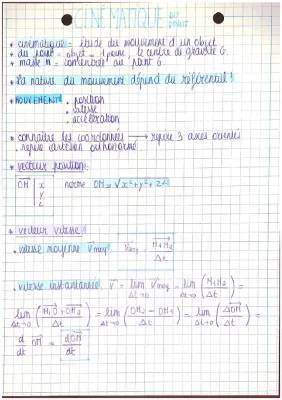 CINÉMATIQUE DU POINT
* cinématique = étude du mouvement d'un objet
* du point = objet = 1 point le centre de gravité G.
* masse m = concentrée au point G.
* La nature du mouvement dépend du référentiel !
* MOUVEMENT . position
. vitesse
. accélération
* connaître les coordonnées → repère 3 axes orientés
. repère cartésien orthonormé
* vecteur position:
OM | x norme OM = √x²+y²+z²
y
z
* vecteur vitesse
. vitesse moyenne V⃗moy V⃗moy = M₁M₂ / Δt
. vitesse instantanée. V⃗ = lim Δt→0 V⃗moy = lim Δt→0 (M₁M₂ / Δt) =
lim Δt→0 (M₁O + OM₂ / Δt) = lim Δt→0 (OM₂ - OM₁ / Δt) = lim Δt→0 (ΔOM / Δt) =
d/dt OM = dOM/dt